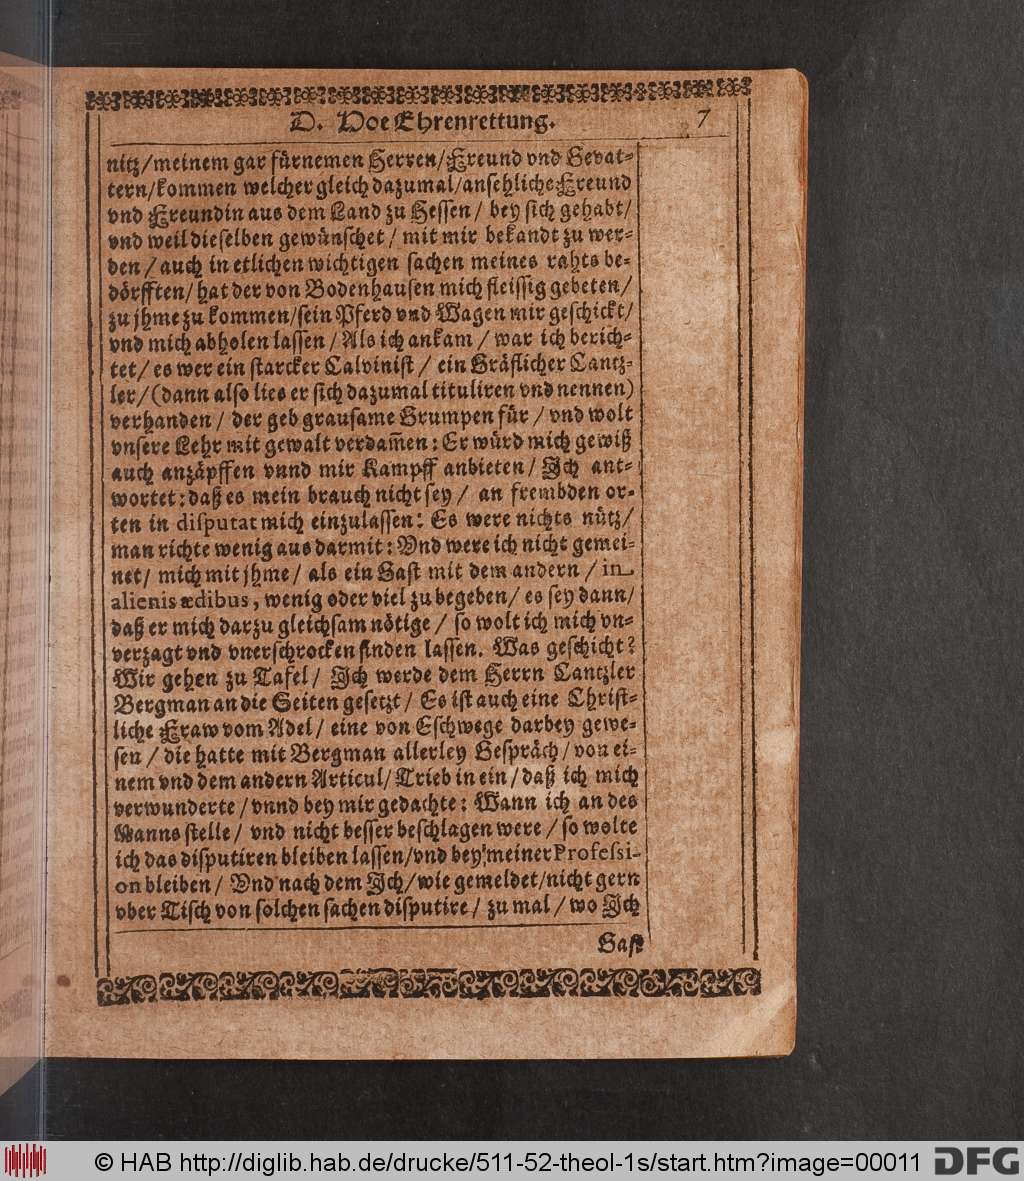 D. Hoe Ehrenrettung. 7
nitz/meinem gar fürnemen Herren/Freund vnd Gevat-
tern/kommen welcher gleich dazumal/ansehliche Freund
vnd Freundin aus dem Land zu Hessen/ bey sich gehabt/
vnd weil dieselben gewünschet/ mit mir bekandt zu wer-
den/ auch in etlichen wichtigen sachen meines rahts be-
dörfften/ hat der von Bodenhausen mich fleissig gebeten/
zu jhme zu kommen/sein Pferd vnd Wagen mir geschickt/
vnd mich abholen lassen/ Als ich ankam/ war ich berich-
tet/ es wer ein starcker Calvinist/ ein Gräflicher Cantz-
ler/ (dann also lies er sich dazumal tituliren vnd nennen)
verhanden/ der geb grausame Grumpen für/ vnd wolt
vnsere Lehr mit gewalt verdam̃en: Er würd mich gewiß
auch anzäpffen vnnd mir Kampff anbieten/ Ich ant-
wortet: daß es mein brauch nicht sey/ an frembden or-
ten in disputat mich einzulassen: Es were nichts nütz/
man richte wenig aus darmit: Vnd were ich nicht gemei-
net/ mich mit jhme/ als ein Gast mit dem andern/ in
alienis ædibus, wenig oder viel zu begeben/ es sey dann/
daß er mich darzu gleichsam nötige/ so wolt ich mich vn-
verzagt vnd vnerschrocken finden lassen. Was geschicht?
Wir gehen zu Tafel/ Ich werde dem Herrn Cantzler
Bergman an die Seiten gesetzt/ Es ist auch eine Christ-
liche Fraw vom Adel/ eine von Eschwege darbey gewe-
sen/ die hatte mit Bergman allerley Gespräch/ von ei-
nem vnd dem andern Articul/ Trieb in ein/ daß ich mich
verwunderte/ vnnd bey mir gedachte: Wann ich an des
Manns stelle/ vnd nicht besser beschlagen were/ so wolte
ich das disputiren bleiben lassen/vnd bey meiner Professi-
on bleiben/ Vnd nach dem Ich/ wie gemeldet/nicht gern
vber Tisch von solchen sachen disputire/ zu mal/ wo Ich
Gast
© HAB http://diglib.hab.de/drucke/511-52-theol-1s/start.htm?image=00011 DFG